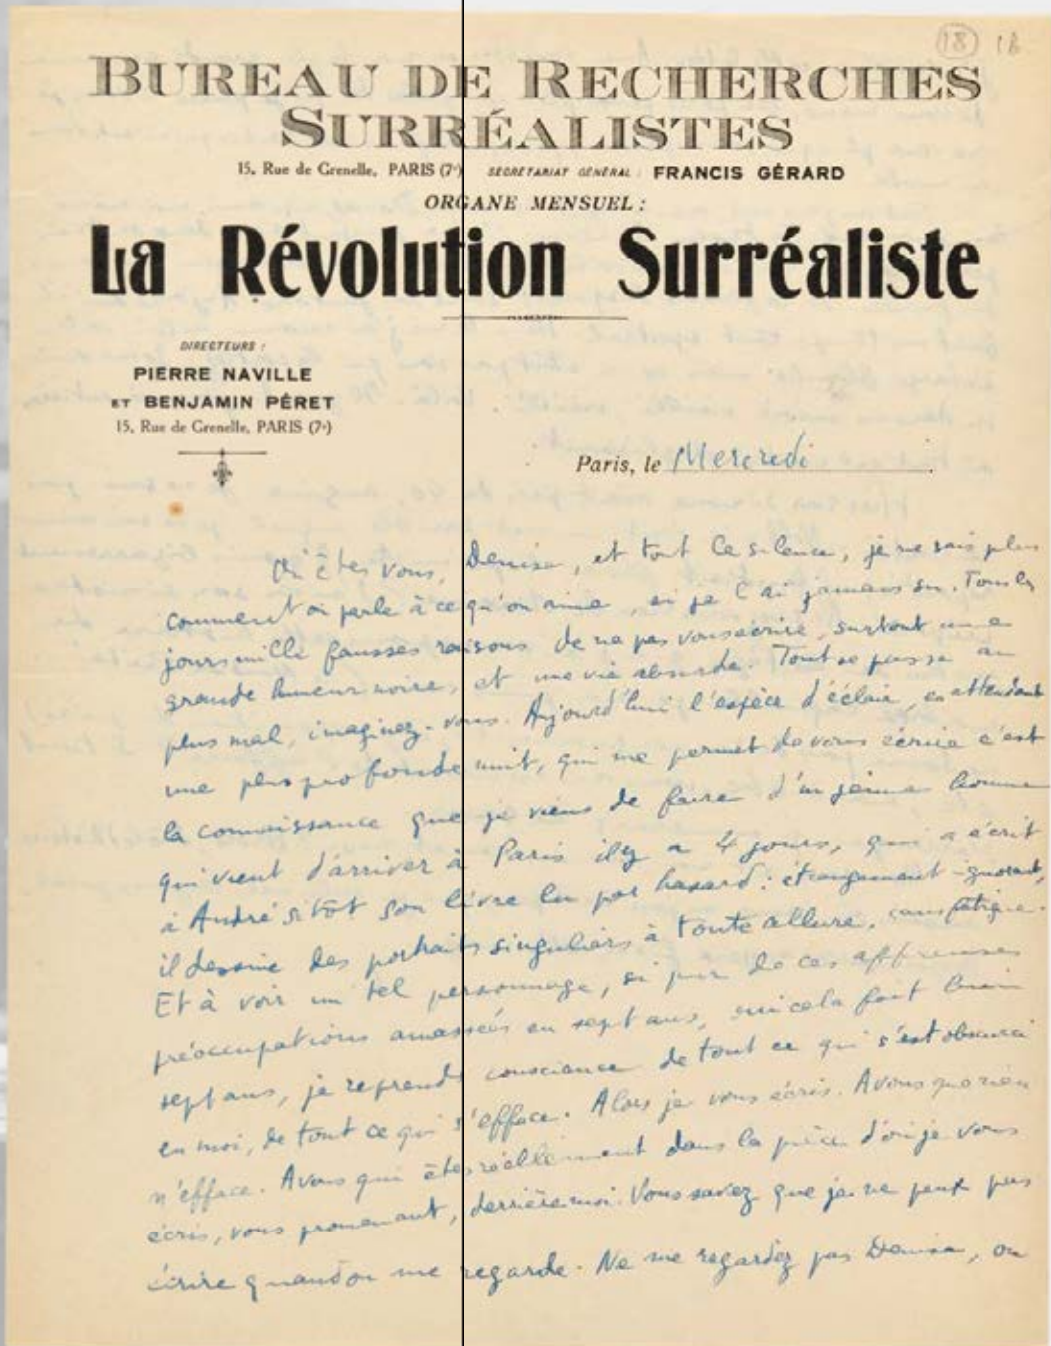 18 18
BUREAU DE RECHERCHES
SURRÉALISTES
15, Rue de Grenelle, PARIS (7e) SECRETARIAT GÉNÉRAL : FRANCIS GÉRARD
ORGANE MENSUEL :
La Révolution Surréaliste
DIRECTEURS :
PIERRE NAVILLE
ET BENJAMIN PÉRET
15, Rue de Grenelle, PARIS (7e)
Paris, le Mercredi
Où êtes vous, Denise, et tout ce silence, je ne sais plus
comment on parle à ce qu'on aime, si je l'ai jamais su. Tous les
jours mille fausses raisons de ne pas vous écrire, surtout une
grande humeur noire, et une vie absurde. Tout se passe au
plus mal, imaginez-vous. Aujourd'hui l'espèce d'éclair, en attendant
une plus profonde nuit, qui me permet de vous écrire c'est
la connaissance que je viens de faire d'un jeune homme
qui vient d'arriver à Paris il y a 4 jours, qui a écrit
à André sitôt son livre lu par hasard : étrangement ignorant,
il dessine des portraits singuliers à toute allure, sans fatigue.
Et à voir un tel personnage, si pur de ces affreuses
préoccupations amassées en sept ans, oui cela fait bien
sept ans, je reprends conscience de tout ce qui s'est obscurci
en moi, de tout ce qui s'efface. Alors je vous écris. A vous que rien
n'efface. A vous qui êtes réellement dans la pièce d'où je vous
écris, vous promenant, derrière moi. Vous savez que je ne peux pas
écrire quand on me regarde. Ne me regardez pas Denise, ou